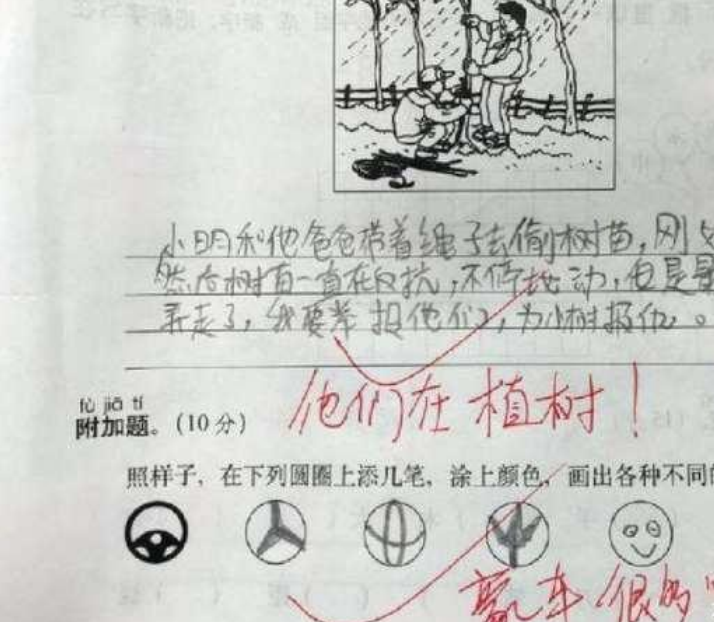 小明和他爸爸带着绳子去偷树苗，刚
然后树苗一直在反抗，不停地动，但是最
弄走了，我要举报他们，为小树报仇。
他们在植树！
fù jiā tí
附加题。(10分)
照样子，在下列圆圈上添几笔，涂上颜色，画出各种不同的
豪车很多